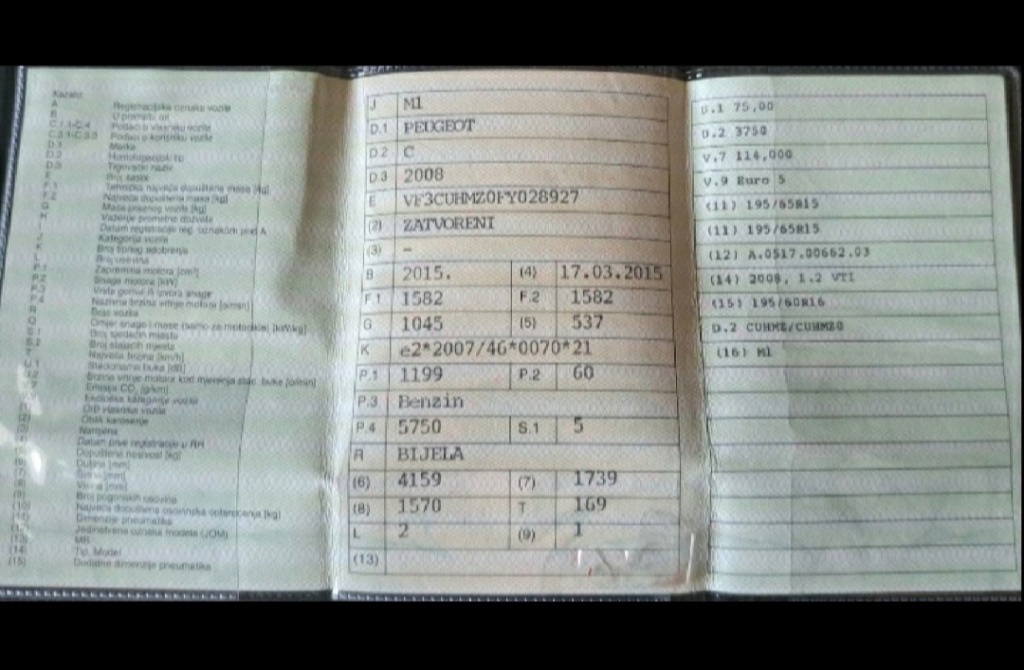 Kazalo:
A Registracijska oznaka vozila
B
C.1.1-C.4
C.3.1-C.3.3 Podaci o korisniku vozila
D.1 Marka
D.2 Homologacijski tip
D.3 Trgovački naziv
E Broj šasije
F.1 Tehnička najveća dopuštena masa [kg]
F.2 Najveća dopuštena masa [kg]
G Masa praznog vozila [kg]
H Važenje prometne dozvole
I Datum registracije reg. oznakom pod A
J Kategorija vozila
K Broj tipnog odobrenja
L Broj osovina
P.1 Zapremina motora [cm³]
P.2 Snaga motora [kW]
P.3 Vrsta goriva ili izvora snage
P.4 Nazivna brzina vrtnje motora [o/min]
R Boja vozila
Q Omjer snage i mase (samo za motocikle) [kW/kg]
S.1 Broj sjedećih mjesta
S.2 Broj stajaćih mjesta
T Najveća brzina [km/h]
U.1 Stacionarna buka [dB]
U.2 Brzina vrtnje motora kod mjerenja stac. buke [o/min]
V.7 Emisija CO₂ [g/km]
V.9 Ekološka kategorija vozila
(1) OIB vlasnika vozila
(2) Oblik karoserije
(3) Namjena
(4) Datum prve registracije u RH
(5) Dopuštena nosivost [kg]
(6) Duljina [mm]
(7) Širina [mm]
(8) Visina [mm]
(9) Broj pogonskih osovina
(10) Najveće dopuštena osovinska opterećenja [kg]
(11) Dimenzije pneumatika
(12) Jedinstvena oznaka modela (JOM)
(13) MB
(14) Tip, Model
(15) Dodatne dimenzije pneumatika
J M1
D.1 PEUGEOT
D.2 C
D.3 2008
E VF3CUHMZ0FY028927
(2) ZATVORENI
(3) –
B 2015. (4) 17.03.2015
F.1 1582 F.2 1582
G 1045 (5) 537
K e2*2007/46*0070*21
P.1 1199 P.2 60
P.3 Benzin
P.4 5750 S.1 5
R BIJELA
(6) 4159 (7) 1739
(8) 1570 T 169
L 2 (9) 1
(13)
U.1 75,00
U.2 3750
V.7 114,000
V.9 Euro 5
(11) 195/65R15
(11) 195/65R15
(12) A.0517.00662.03
(14) 2008, 1.2 VTI
(15) 195/60R16
D.2 CUHMZ/CUHMZ0
(16) M1